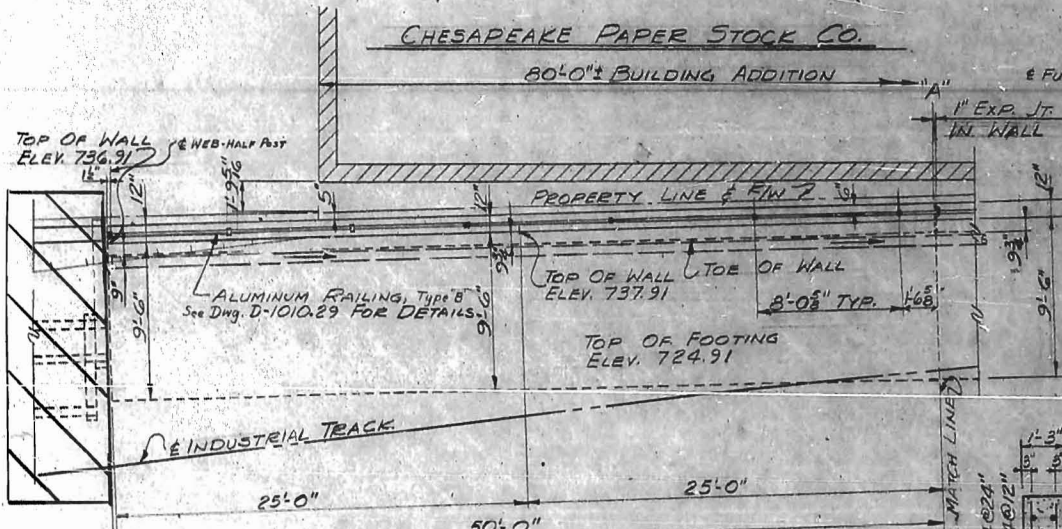 CHESAPEAKE PAPER STOCK CO.
80'-0"± BUILDING ADDITION
"A"
℄ FU
1" EXP. JT.
IN WALL
TOP OF WALL
ELEV. 736.91
℄ WEB-HALF POST
1½"
12"
1'-9 5/16"
5"
12"
PROPERTY LINE & F/W
6"
12"
9"
9'-6"
ALUMINUM RAILING, Type "B"
See Dwg. D-1010.29 FOR DETAILS
9'-6"
TOP OF WALL
ELEV. 737.91
TOE OF WALL
8'-0 5/8" TYP.
1'-6 5/8"
9'-6"
TOP OF FOOTING
ELEV. 724.91
℄ INDUSTRIAL TRACK
MATCH LINE
25'-0"
25'-0"
50'-0"
1'-3"
@24"
@12"